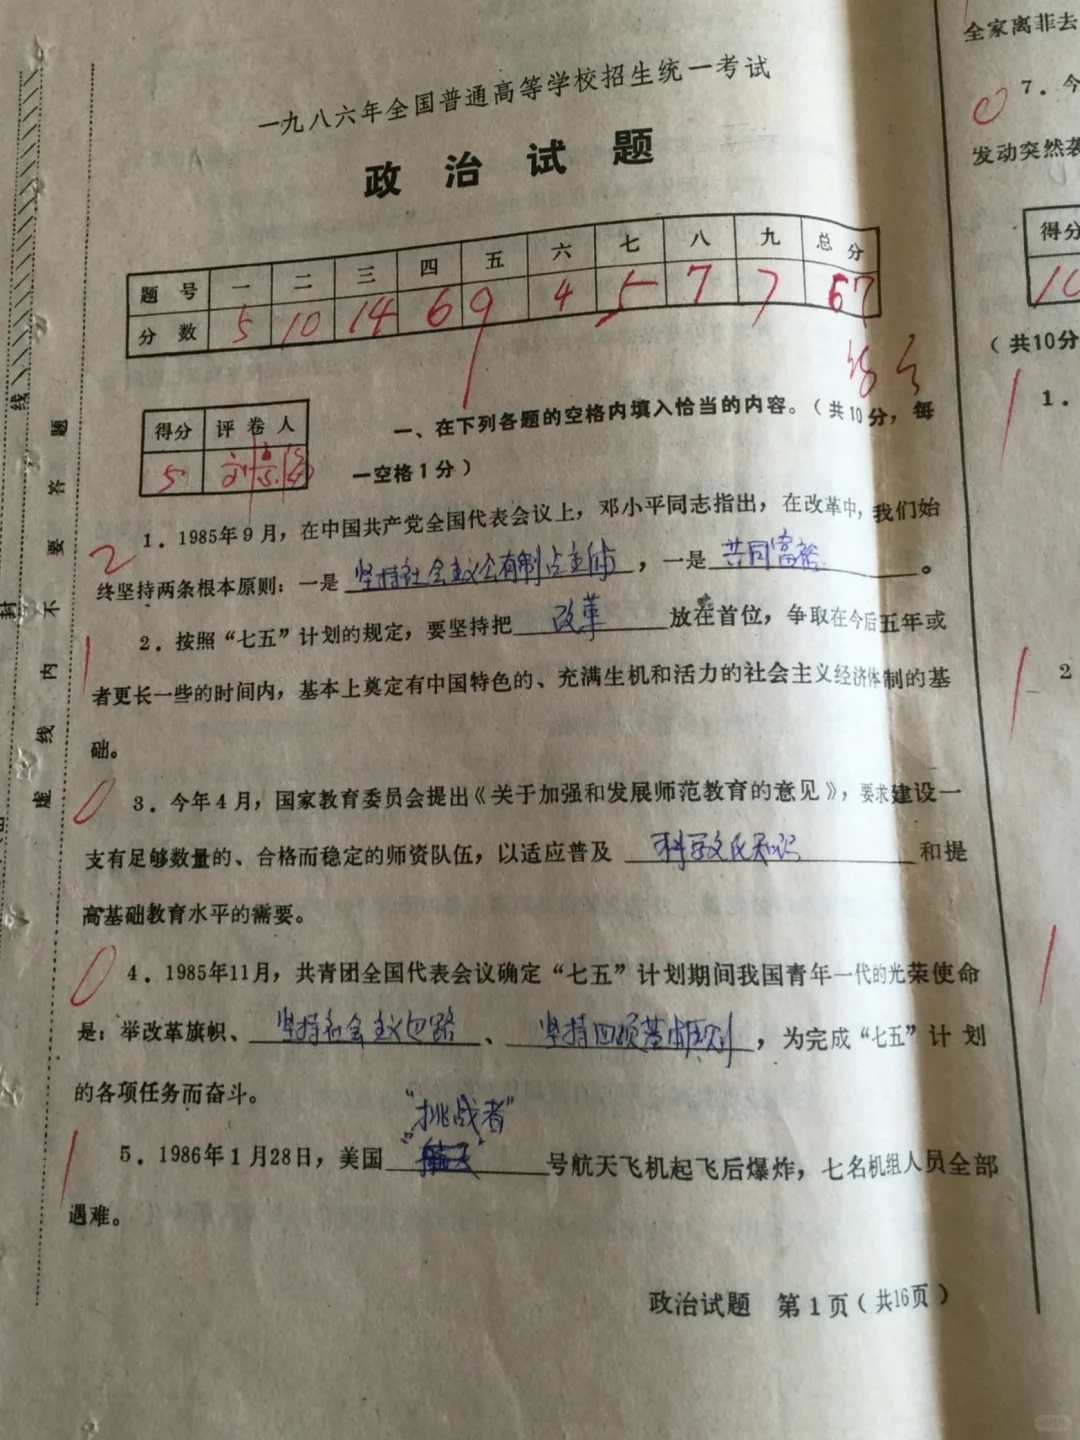 一九八六年全国普通高等学校招生统一考试
政治试题
题号 一 二 三 四 五 六 七 八 九 总分
分数 5 10 14 6 9 4 5 7 7 67
得分 评卷人
5
一、在下列各题的空格内填入恰当的内容。（共10分，每
一空格1分）
2
1．1985年9月，在中国共产党全国代表会议上，邓小平同志指出，在改革中，我们始
终坚持两条根本原则：一是 坚持社会主义公有制占主体 ，一是 共同富裕 。
2．按照“七五”计划的规定，要坚持把 改革 放在首位，争取在今后五年或
者更长一些的时间内，基本上奠定有中国特色的、充满生机和活力的社会主义经济体制的基
础。
0
3．今年4月，国家教育委员会提出《关于加强和发展师范教育的意见》，要求建设一
支有足够数量的、合格而稳定的师资队伍，以适应普及 科学文化知识 和提
高基础教育水平的需要。
0
4．1985年11月，共青团全国代表会议确定“七五”计划期间我国青年一代的光荣使命
是：举改革旗帜、 坚持社会主义道路 、 坚持四项基本原则 ，为完成“七五”计划
的各项任务而奋斗。
“挑战者”
5．1986年1月28日，美国 号航天飞机起飞后爆炸，七名机组人员全部
遇难。
政治试题 第1页（共16页）
密封线内不要答题
全家离菲去
0
7．今
发动突然袭
得分
10
（共10分
1．
2